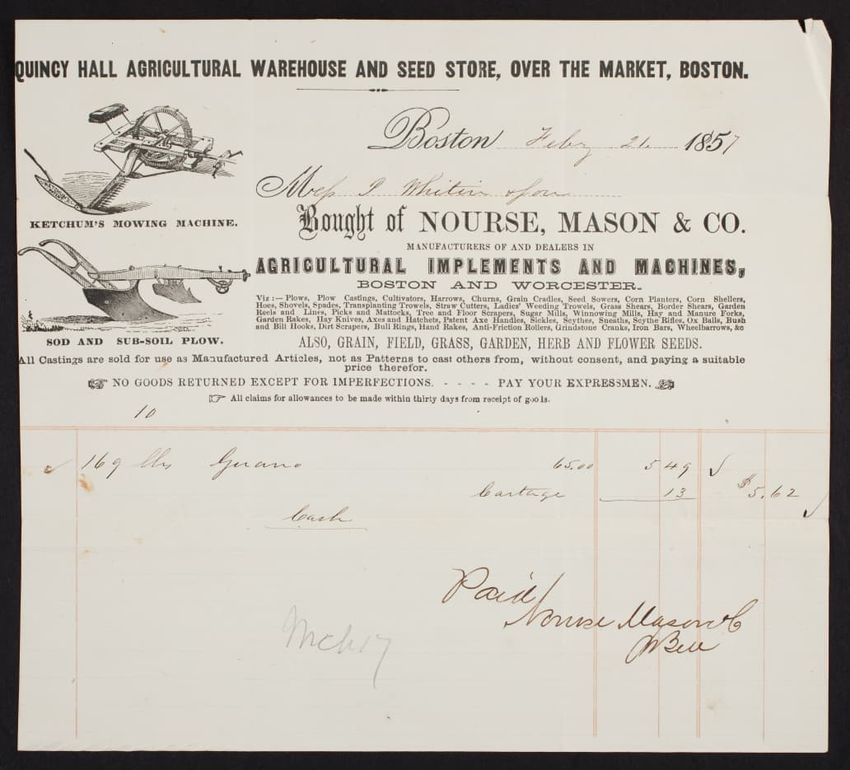 QUINCY HALL AGRICULTURAL WAREHOUSE AND SEED STORE, OVER THE MARKET, BOSTON.
Boston Feby 21 1857
Mess P Whitin & Son
KETCHUM'S MOWING MACHINE.
Bought of NOURSE, MASON & CO.
MANUFACTURERS OF AND DEALERS IN
AGRICULTURAL IMPLEMENTS AND MACHINES,
BOSTON AND WORCESTER.
Viz:—Plows, Plow Castings, Cultivators, Harrows, Churns, Grain Cradles, Seed Sowers, Corn Planters, Corn Shellers,
Hoes, Shovels, Spades, Transplanting Trowels, Straw Cutters, Ladies' Weeding Trowels, Grass Shears, Border Shears, Garden
Reels and Lines, Picks and Mattocks, Tree and Floor Scrapers, Sugar Mills, Winnowing Mills, Hay and Manure Forks,
Garden Rakes, Hay Knives, Axes and Hatchets, Patent Axe Handles, Sickles, Scythes, Sneaths, Scythe Rifles, Ox Balls, Bush
and Bill Hooks, Dirt Scrapers, Bull Rings, Hand Rakes, Anti-Friction Rollers, Grindstone Cranks, Iron Bars, Wheelbarrows, &c
SOD AND SUB-SOIL PLOW.
ALSO, GRAIN, FIELD, GRASS, GARDEN, HERB AND FLOWER SEEDS.
All Castings are sold for use as Manufactured Articles, not as Patterns to cast others from, without consent, and paying a suitable
price therefor.
NO GOODS RETURNED EXCEPT FOR IMPERFECTIONS. - - - - PAY YOUR EXPRESSMEN.
All claims for allowances to be made within thirty days from receipt of goods.
10
169 lbs Guano 65.00 5 49
Cartage 13 $5.62
Cash
Paid
Nourse Mason & C
Bell
Mch 17